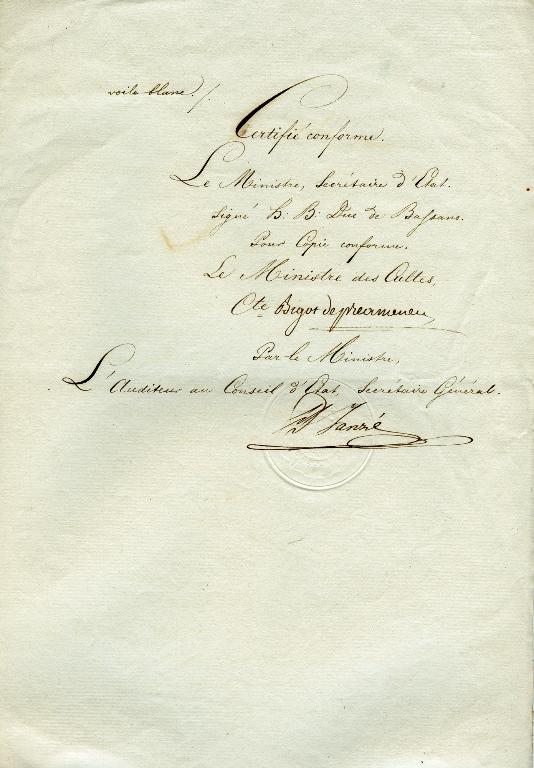 voile blanc ./.
Certifié conforme.
Le Ministre, Secrétaire d'Etat.
Signé h: B: Duc de Bassano.
Pour Copie conforme.
Le Ministre des Cultes,
Cte Bigot de préameneu
Par le Ministre,
L'Auditeur au Conseil d'Etat, Secrétaire Général.
Janzé